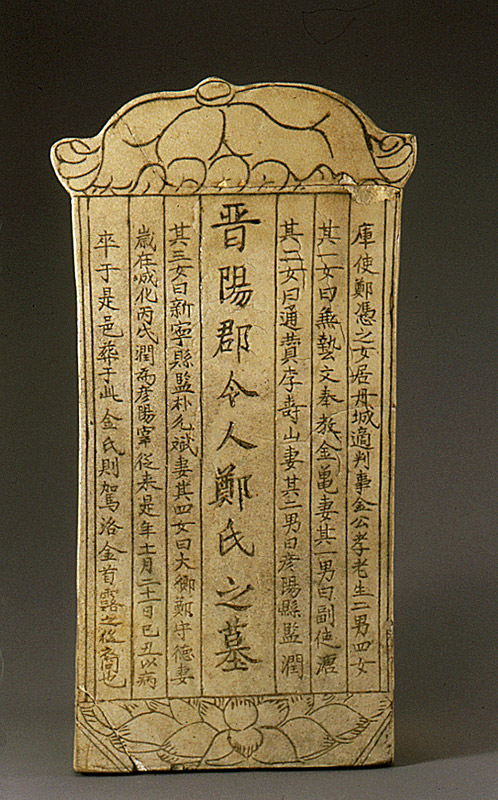 庫使鄭憑之女居丹城適判事金公孝老生二男四女
其一女曰無藝文奉教金黽妻其一男曰副使潤
其二女曰通贊李壽山妻其二男曰彦陽縣監潤
晋陽郡令人鄭氏之墓
其三女曰新寧縣監朴允斌妻其四女曰大卿鄭守德妻
歲在成化丙戌潤為彦陽宰從来是年十月二十一日己丑以病
卒于是邑葬于此金氏則駕洛金首露之後裔也